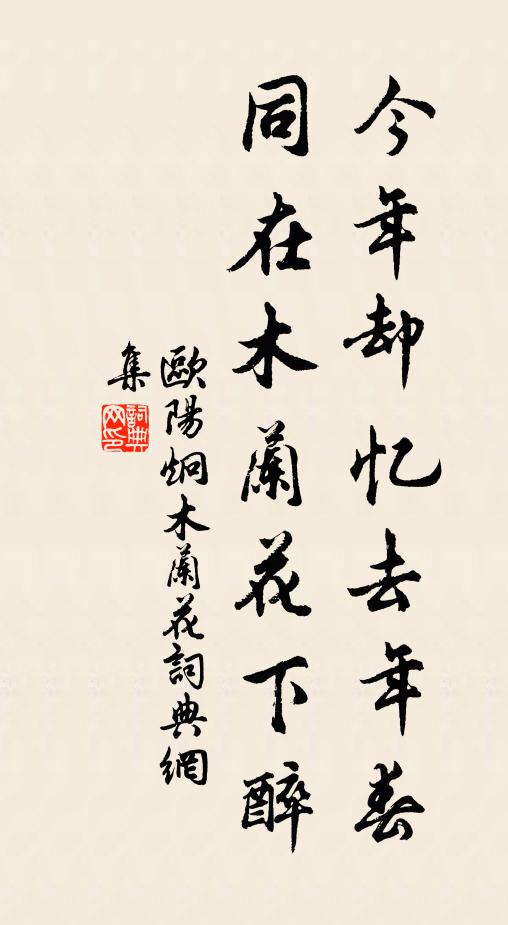 今年却忆去年春
同在木蘭花下醉
歐陽炯木蘭花詞典網
集
詞典網印